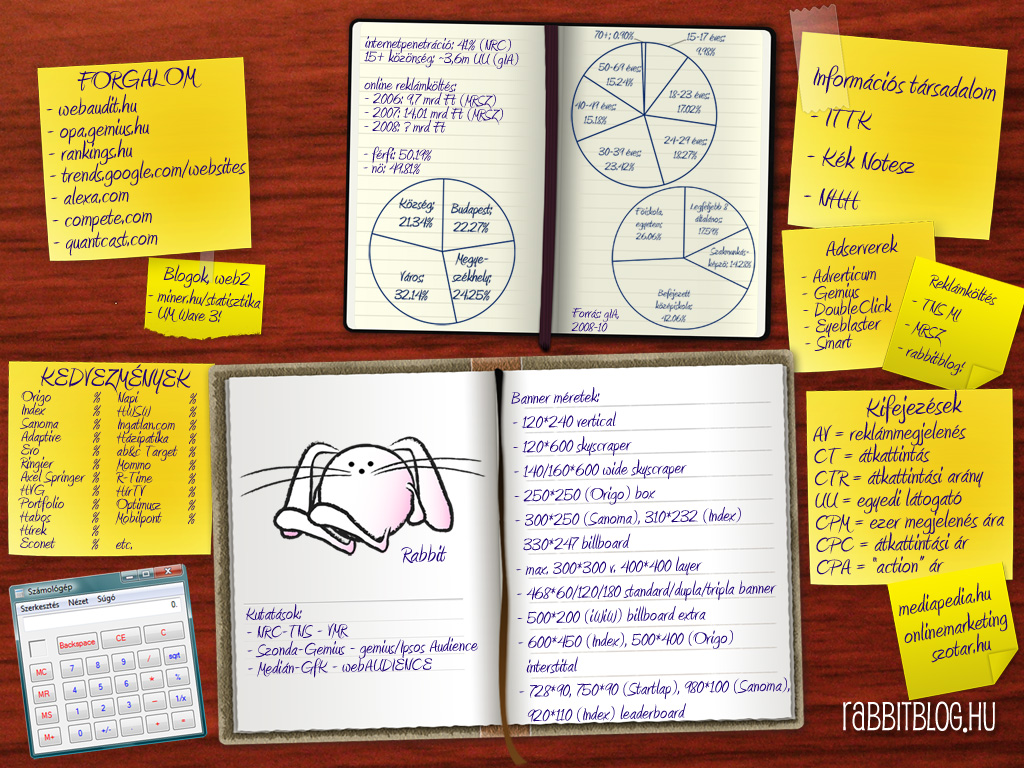 FORGALOM
- webaudit.hu
- opa.gemius.hu
- rankings.hu
- trends.google.com/websites
- alexa.com
- compete.com
- quantcast.com
Blogok, web2
- miner.hu/statisztika
- UM Wave 3!
internetpenetráció: 41% (NRC)
15+ közönség: ~3,6m UU (gIA)
online reklánköltés:
- 2006: 9,7 mrd Ft (MRSZ)
- 2007: 14,01 mrd Ft (MRSZ)
- 2008: ? mrd Ft
- férfi: 50.19%
- nö: 49.81%
Község; 21.34%
Budapest; 22.27%
Város; 32.14%
Megye-székhely; 24.25%
70+; 0.90%
15-17 éves; 9.98%
50-69 éves; 15.24%
18-23 éves; 17.02%
40-49 éves; 15.18%
24-29 éves; 18.27%
30-39 éves; 23.42%
Föiskola, egyetem; 26.06%
Legfeljebb 8 általános; 17.59%
Szakmunkás-képzö; 14.28%
Befejezett középiskola; 42.06%
Forrás: gIA,
2008-10
Információs társadalom
- ITTK
- Kék Notesz
- NHH
Adserverek
- Adverticum
- Gemius
- DoubleClick
- Eyeblaster
- Smart
Reklánköltés
- TNS MI
- MRSZ
- rabbitblog!
KEDVEZMÉNYEK
Origo % Napi %
Index % HVSW %
Sanoma % Ingatlan.com %
Adaptive % Házipatika %
Evo % ab&c Target %
Ringier % Mommo %
Axel Springer % R-Time %
HVG % HírTV %
Portfolio % Optimusz %
Habos % Mobilpont %
Hírek %
Econet % etc.
Rabbit
Kutatások:
- NRC-TNS - VMR
- Szonda-Gemius - gemius/Ipsos Audience
- Medián-GfK - webAUDIENCE
Banner méretek:
- 120*240 vertical
- 120*600 skyscraper
- 140/160*600 wide skyscraper
- 250*250 (Origo) box
- 300*250 (Sanoma), 310*232 (Index)
330*247 billboard
- max. 300*300 v. 400*400 layer
- 468*60/120/180 standard/dupla/tripla banner
- 500*200 (iWiW) billboard extra
- 600*450 (Index), 500*400 (Origo)
interstital
- 728*90, 750*90 (Startlap), 980*100 (Sanoma),
920*110 (Index) leaderboard
Kifejezések
AV = reklámmegjelenés
CT = átkattintás
CTR = átkattintási arány
UU = egyedi látogató
CPM = ezer megjelenés ára
CPC = átkattintási ár
CPA = "action" ár
mediapedia.hu
onlinemarketing
szotar.hu
Számológép
Szerkesztés Nézet Súgó
0.
Backspace CE C
MC 7 8 9 / sqrt
MR 4 5 6 * %
MS 1 2 3 - 1/x
M+ 0 +/- . + =
RABBITBLOG.HU